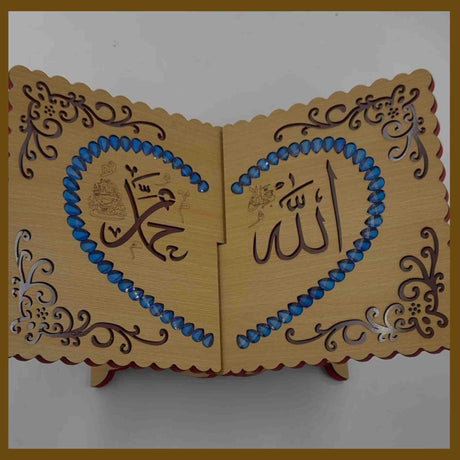 الله
محمد